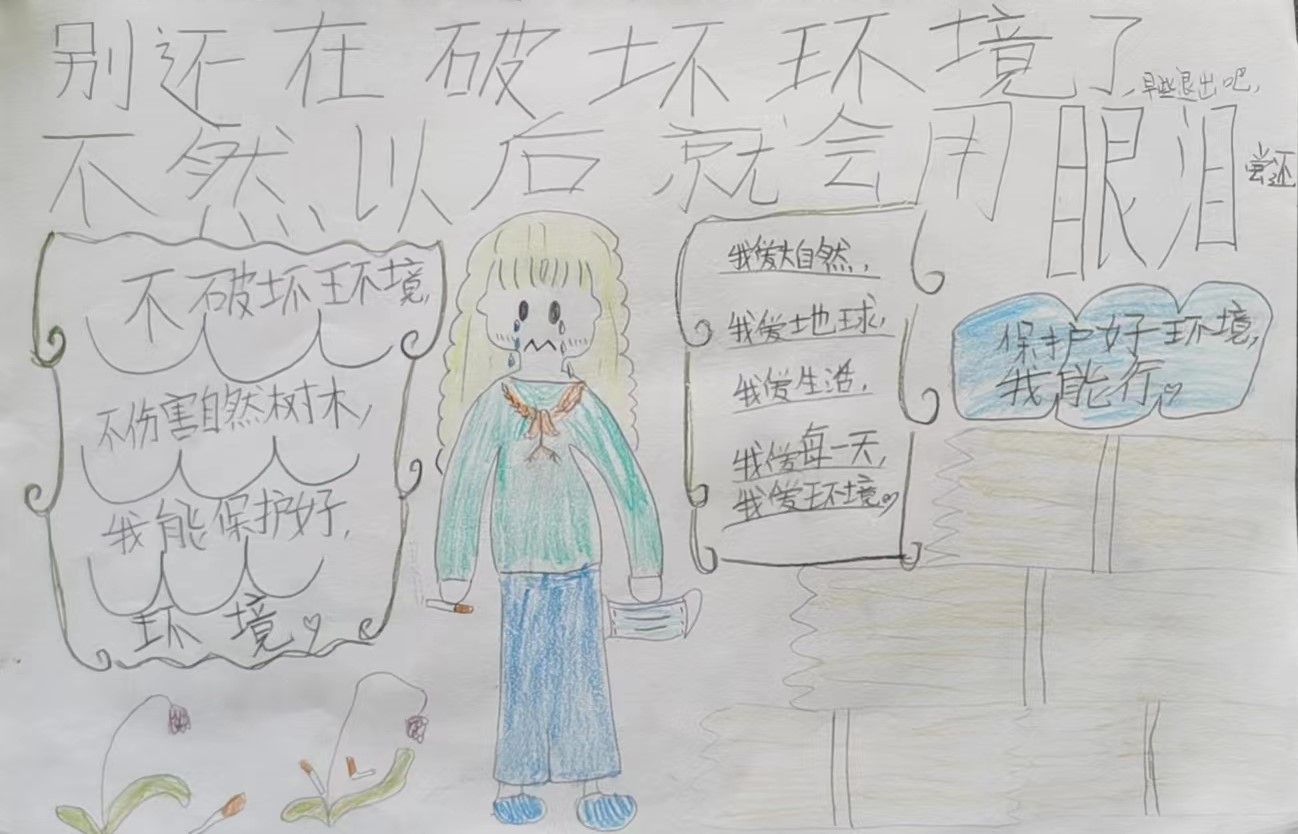 别还在破坏环境了,早些退出吧,
不然以后就会用眼泪尝还
不破坏环境,
不伤害自然树木,
我能保护好,
环境
我爱大自然,
我爱地球,
我爱生活,
我爱每一天,
我爱环境
保护好环境,
我能行